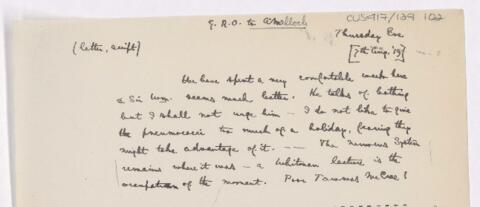 G.R.O. to A Malloch
CUS417/129 1.22
(letter, a.mss)
Thursday Eve
[7th Aug. '19]
We have spent a very comfortable week here
& Sir Wm. seems much better. He talks of bathing
but I shall not urge him — I do not like to give
the pneumococci too much of a holiday, fearing they
might take advantage of it. —— The nervous system
remains where it was — a Whitman lecture is the
occupation of the moment. Poor Tommas McCrae!